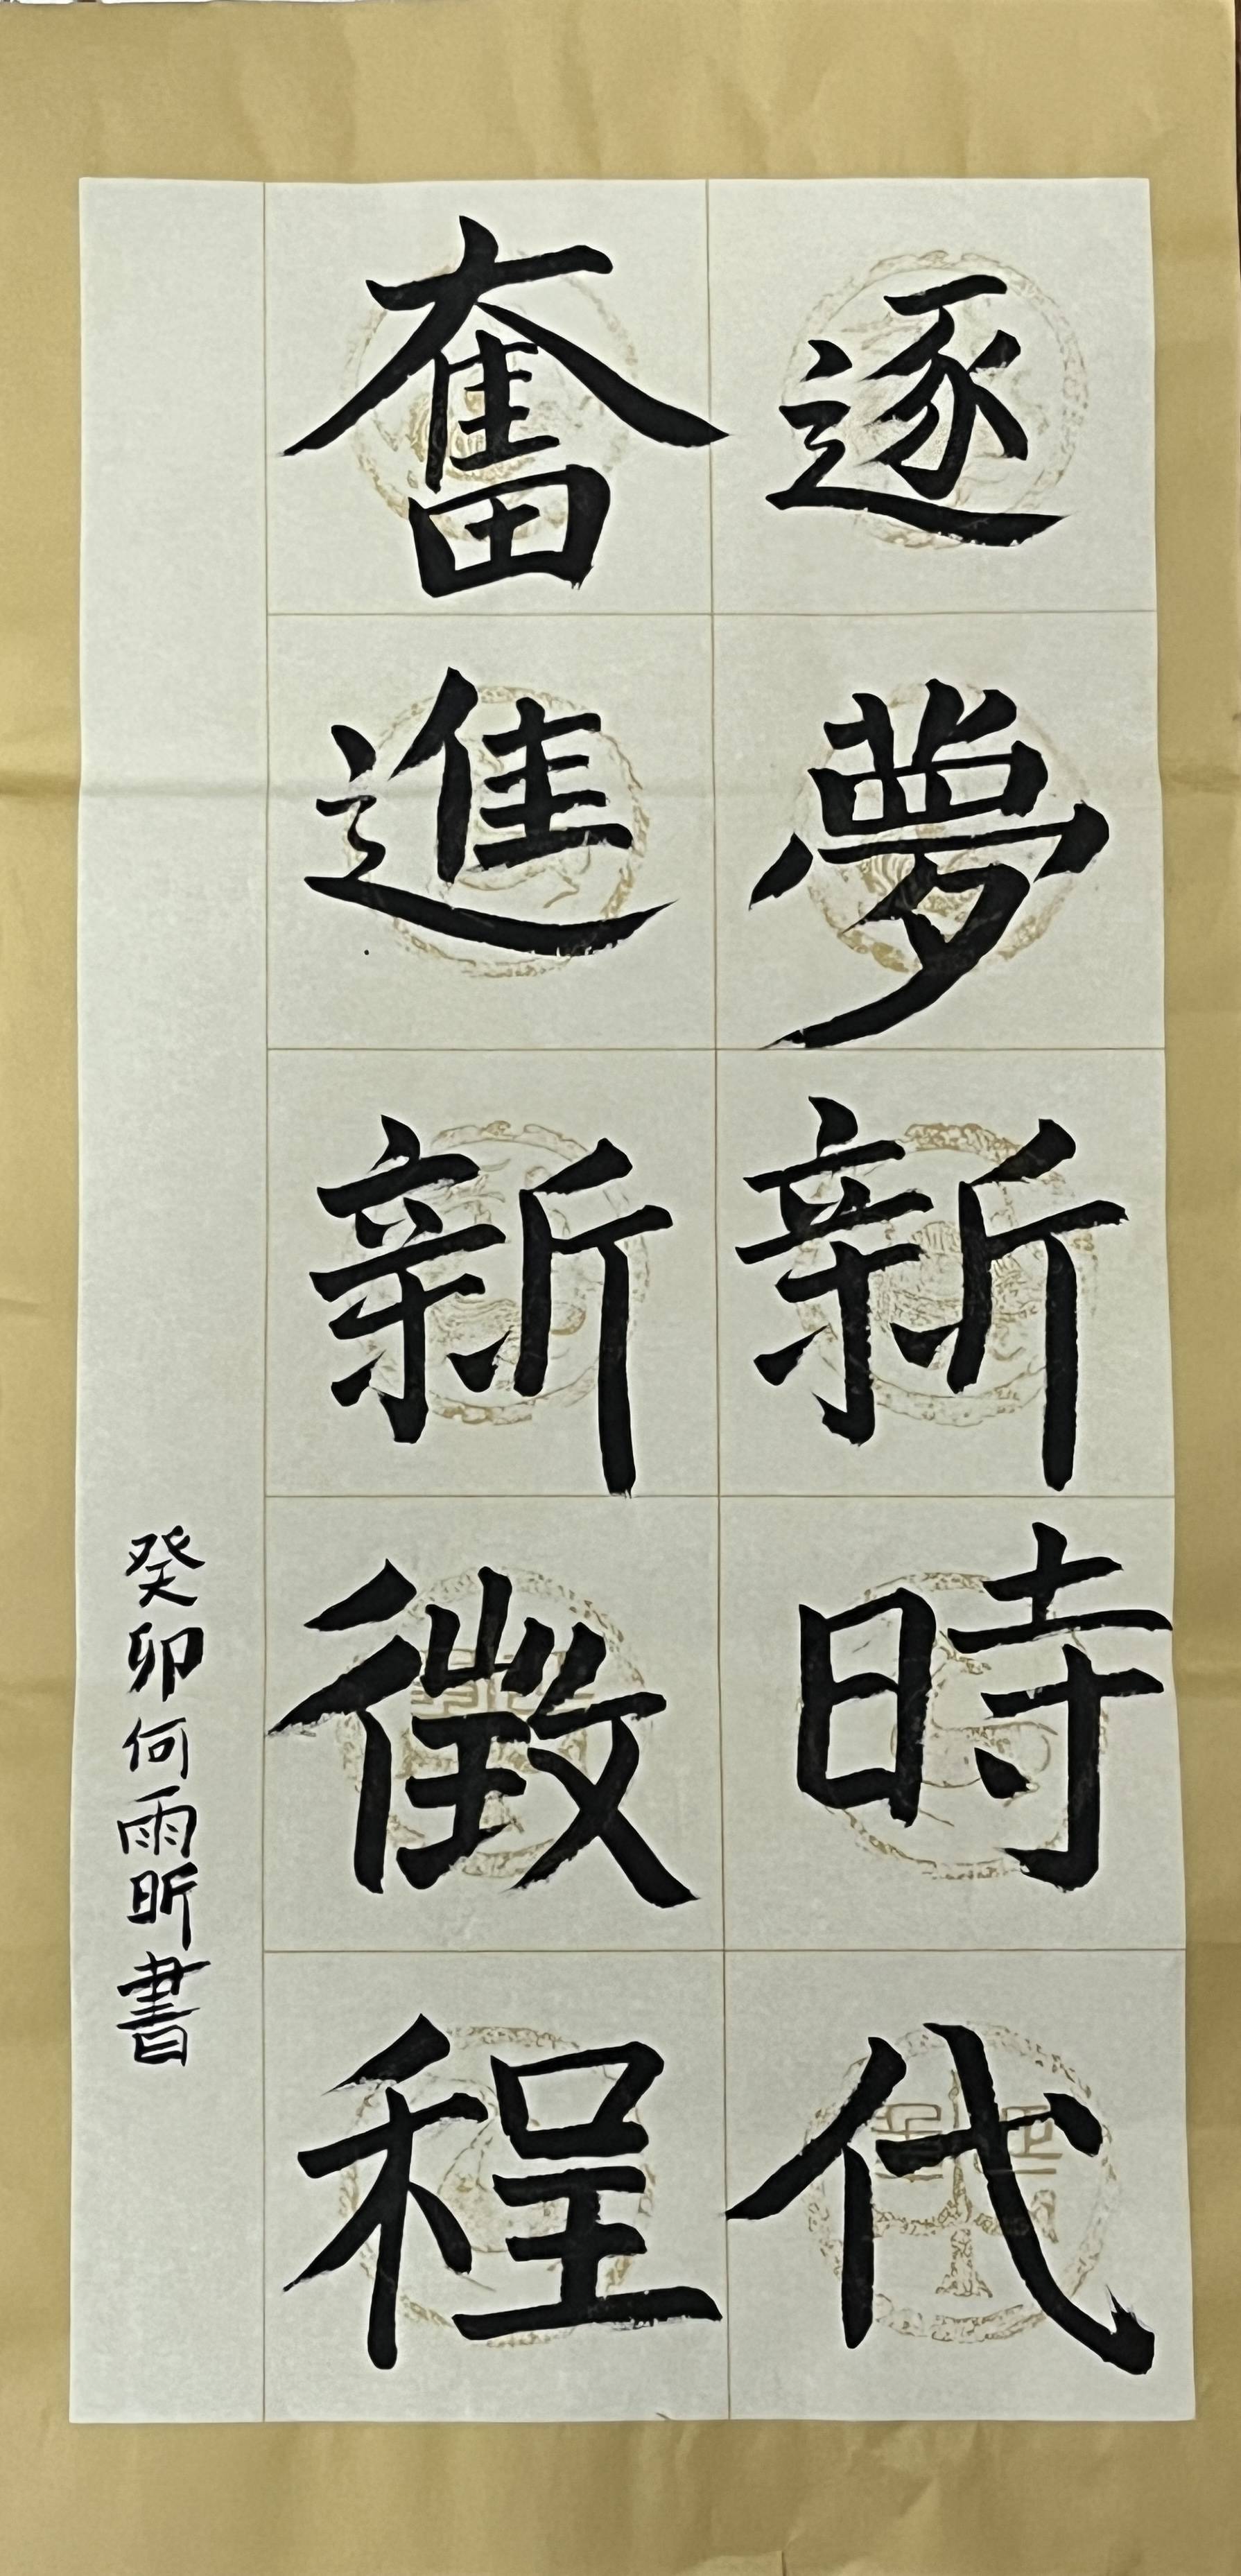 逐夢新時代
奮進新徵程
癸卯何雨昕書